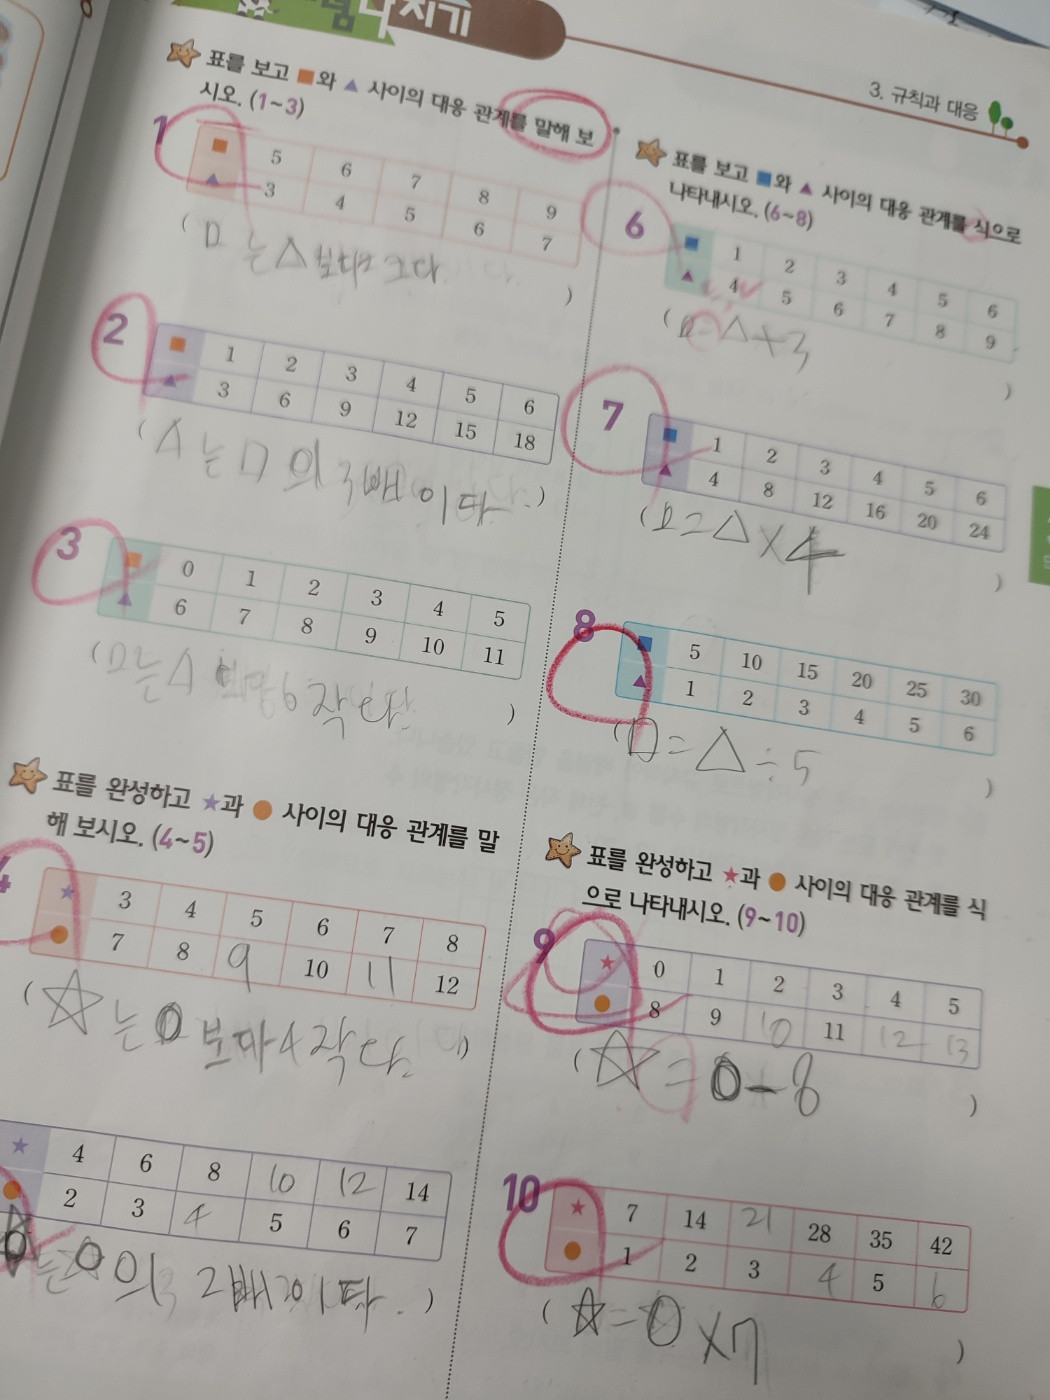 3. 규칙과 대응
표를 보고 ■와 ▲ 사이의 대응 관계를 말해 보
시오. (1~3)
1
■ 5 6 7 8 9
▲ 3 4 5 6 7
( □는 △보다 크다. )
2
■ 1 2 3 4 5 6
▲ 3 6 9 12 15 18
( △는 □의 3배이다. )
3
■ 0 1 2 3 4 5
▲ 6 7 8 9 10 11
( □는 △ 6 작다. )
표를 완성하고 ★과 ● 사이의 대응 관계를 말
해 보시오. (4~5)
4
★ 3 4 5 6 7 8
● 7 8 9 10 11 12
( ☆는 ○보다 4 작다. )
★ 4 6 8 10 12 14
● 2 3 4 5 6 7
○의 2배이다. )
표를 보고 ■와 ▲ 사이의 대응 관계를 식으로
나타내시오. (6~8)
6
■ 1 2 3 4 5 6
▲ 4 5 6 7 8 9
( □=△+3 )
7
■ 1 2 3 4 5 6
▲ 4 8 12 16 20 24
( □=△×4 )
8
■ 5 10 15 20 25 30
▲ 1 2 3 4 5 6
( □=△÷5 )
표를 완성하고 ★과 ● 사이의 대응 관계를 식
으로 나타내시오. (9~10)
9
★ 0 1 2 3 4 5
● 8 9 10 11 12 13
( ☆=○-8 )
10
★ 7 14 21 28 35 42
● 1 2 3 4 5 6
( ☆=○×7 )